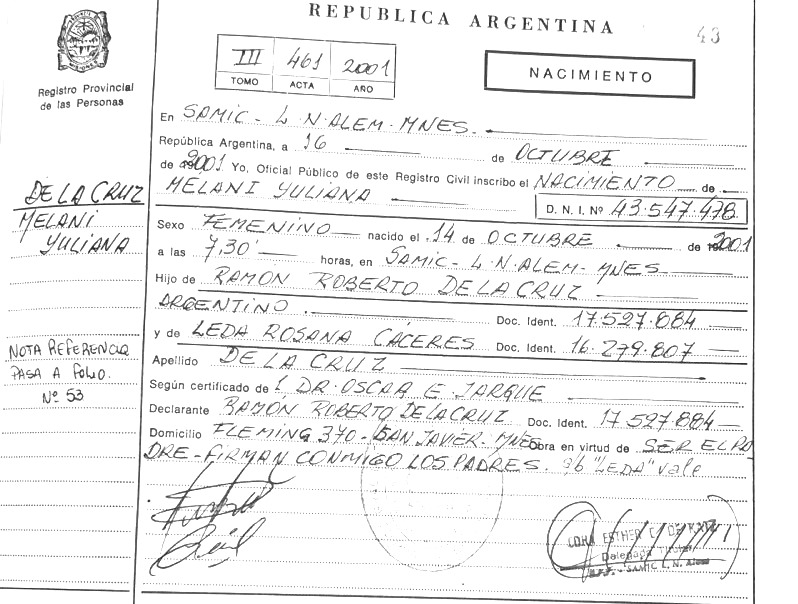 REPUBLICA ARGENTINA
43
Registro Provincial
de las Personas
III 461 2001
TOMO ACTA AÑO
NACIMIENTO
En SAMIC - L. N. ALEM - MNES.
República Argentina, a 16 de OCTUBRE
de 2001 Yo, Oficial Público de este Registro Civil inscribo el NACIMIENTO de
MELANI YULIANA D. N. I. Nº 43.547.478
DE LA CRUZ
MELANI
YULIANA
Sexo FEMENINO nacido el 14 de OCTUBRE de 2001
a las 7,30' horas, en SAMIC - L. N. ALEM - MNES
Hijo de RAMON ROBERTO DE LA CRUZ
ARGENTINO. Doc. Ident. 17.527.884
y de LEDA ROSANA CÁCERES Doc. Ident. 16.279.807
Apellido DE LA CRUZ
NOTA REFERENCIA
PASA A FOLIO.
Nº 53
Según certificado de DR. OSCAR E. JARQUE
Declarante RAMÓN ROBERTO DE LA CRUZ Doc. Ident. 17.527.884
Domicilio FLEMING 370 - SAN JAVIER - MNES Obra en virtud de SER EL PA
DRE - FIRMAN CONMIGO LOS PADRES. s/b "LEDA" vale
ESTHER C. DE
SAMIC L. N. Alem